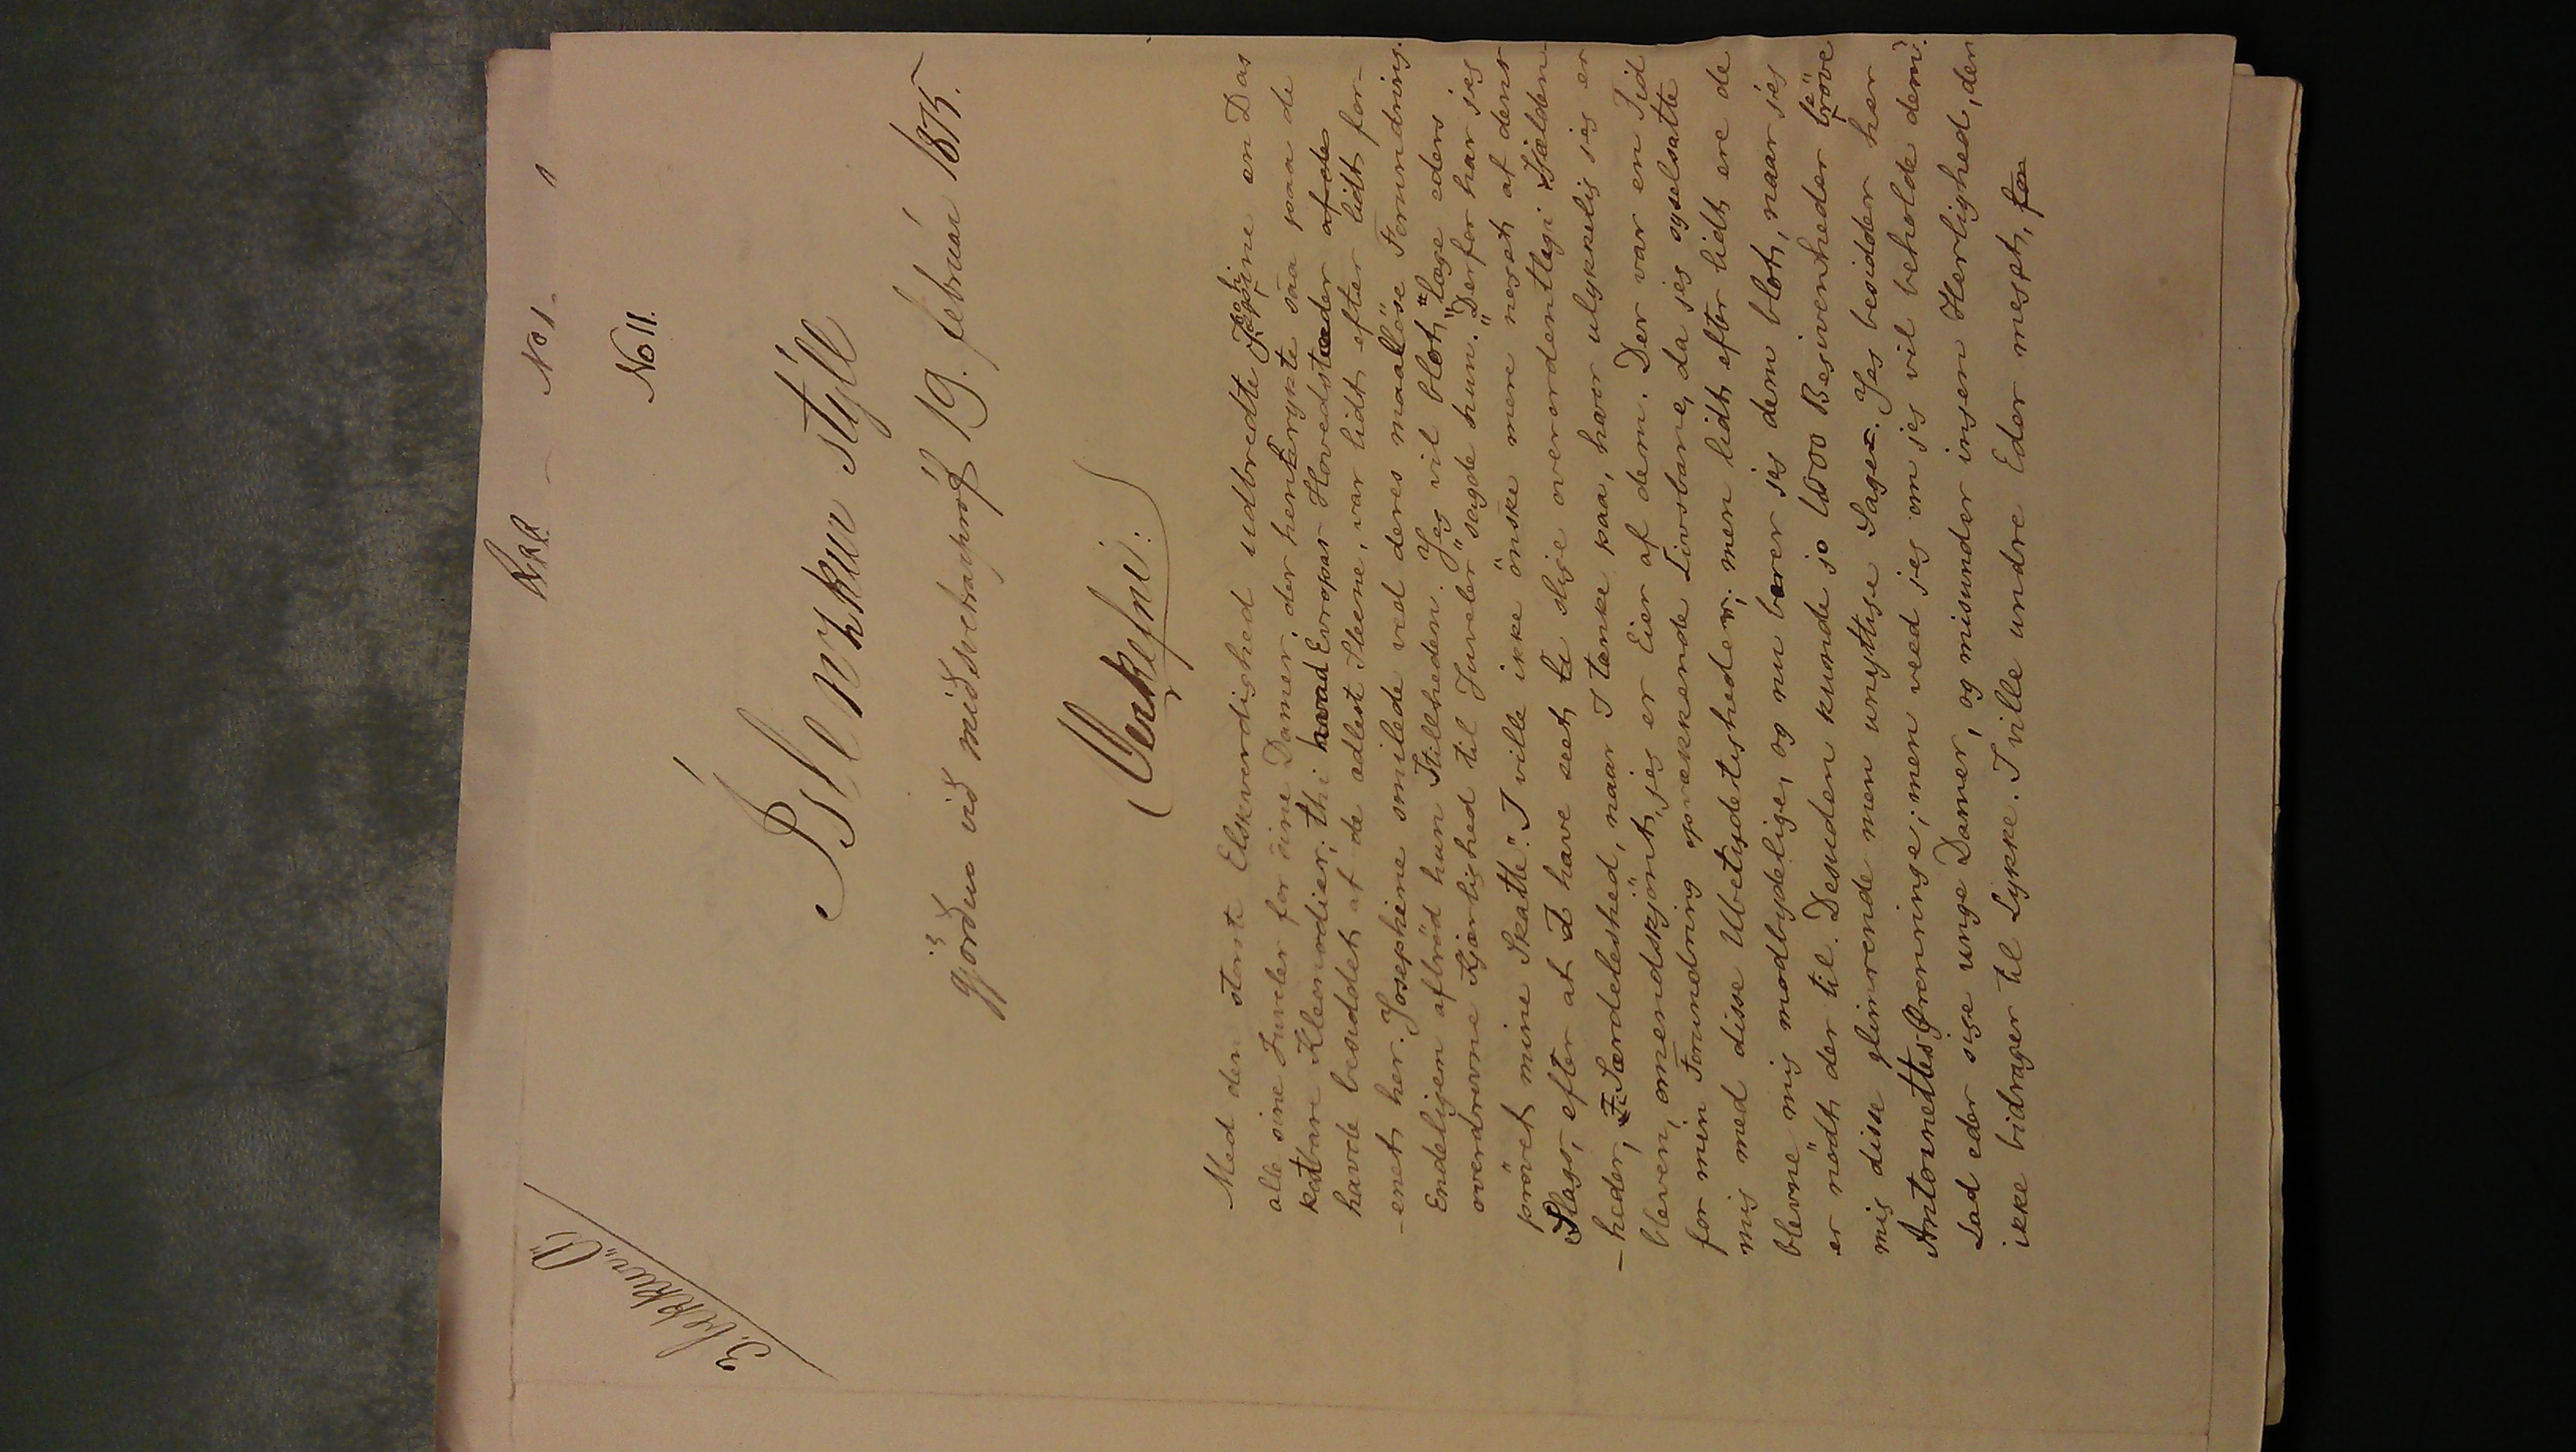 No 1.
No 11.
3. bekkur „B"
Íslenzkur stýll
gjörður við miðsvetrarpróf 19. febrúar 1875.
(Verkefni:)
Med den störste Elskværdighed udbredte Josephine en Dag
alle sine Juveler for sine Damer, der henrykte saa paa de
kostbare Kleonodier; thi hvad Evropas Hovedstæder af de
havde besiddet af de ædlest Steene, var lidt efter lidt for-
-enet her. Josephine smilede ved deres maalöse Forundring.
Endeligen afbröd hun Stillheden. Jeg vil blot "læge eders
overdrevne Kjærlighed til Juveler" sagde hun. "Derfor har jeg
prövet mine Skatte. I ville ikke önske mere neget af dens
Slags, efter at I have seet til slige overordentlegi Sjælden-
-heder, I Særdeleshed, naar I tænke paa, hvor ulykkelig jeg er
bleven, omendskjönt jeg er Eier af dem. Der var en Tid
for min Forundring opvækkende Livsbane, da jeg sysselsatte
mig med disse Ubetydetigheder; men lidt efter lidt ere de
blevne mig modbydelige, og nu bærer jeg dem blot, naar jeg
er nödt der til. Desuden kunde jo 1000 Begivenheder beröve
mig disse glimrende men unyttige Sager. Jeg besidder her
Antoinettes Örenringe; men veed jeg om jeg vil beholde dem?
Lad eder sige unge Damer, og misunder ingen Herlighed, den
ikke bidrager til Lykke. I ville undre Eder mest, for